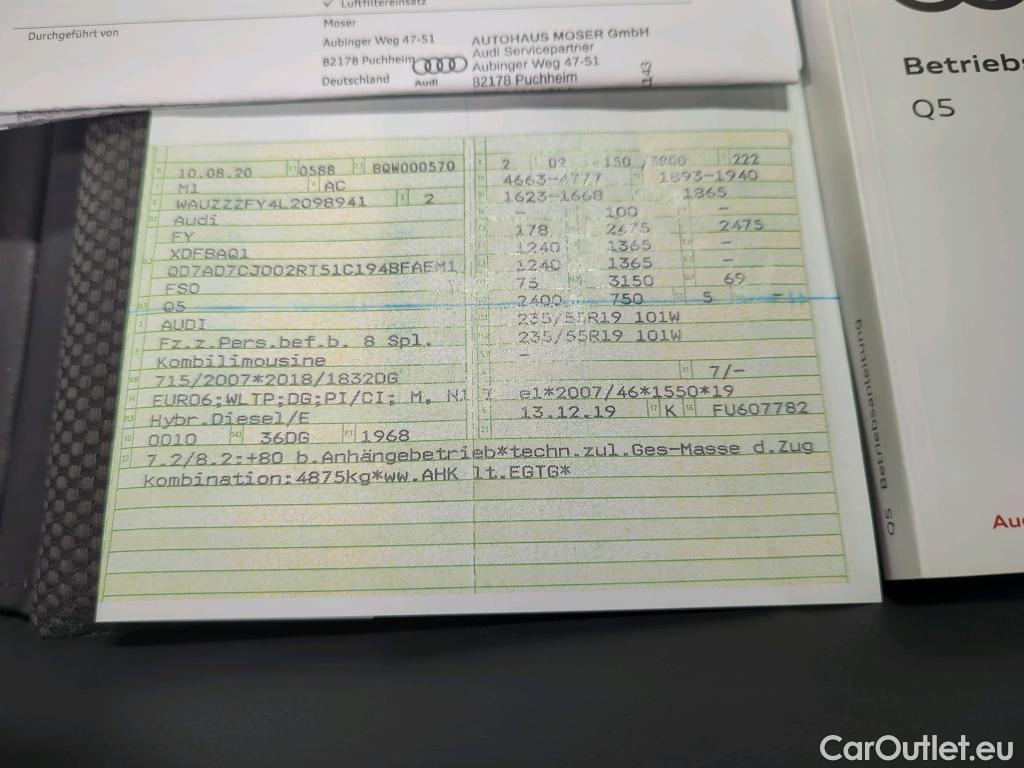 ✓ Luftfiltereinsatz
Durchgeführt von
Moser
Aubinger Weg 47-51
82178 Puchheim
Deutschland
Audi
AUTOHAUS MOSER GmbH
Audi Servicepartner
Aubinger Weg 47-51
82178 Puchheim
1143
Betriebs
Q5
10.08.20 0588 BQW000570
M1 AC
WAUZZZFY4L2098941 2
Audi
FY
XDFBAQ1
QD7AD7CJ002RT51C194BFAEM1
FSO
Q5
AUDI
Fz.z.Pers.bef.b. 8 Spl.
Kombilimousine
715/2007*2018/1832DG
EURO6;WLTP;DG;PI/CI; M, N1 I
Hybr.Diesel/E
0010 36DG 1968
7.2/8.2:+80 b.Anhängebetrieb*techn.zul.Ges-Masse d.Zug
kombination:4875kg*ww.AHK lt.EGTG*
2 02 150 /3800 222
4663-4777 1893-1940
1623-1668 1865
- 100 -
178 2475 2475
1240 1365 -
1240 1365 -
75 3150 69
2400 750 5 -
235/55R19 101W
235/55R19 101W
-
7/-
e1*2007/46*1550*19
13.12.19 K FU607782
Q5 Betriebsanleitung
Au
CarOutlet.eu